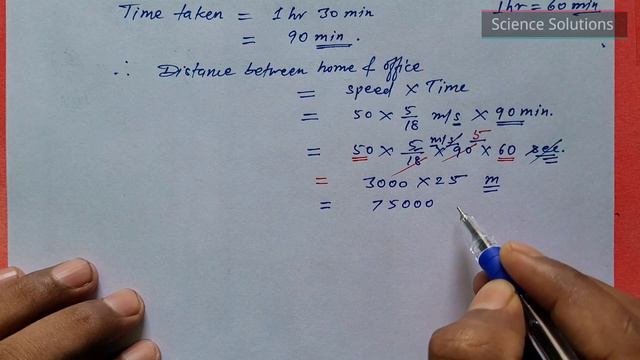 Time taken = 1 hr 30 min
1 hr = 60 min
Science Solutions
= 90 min.
∴ Distance between home & office
= speed × Time
= 50 × 5/18 m/s × 90 min.
= 50 × 5/18 m/s × 90 5 × 60 sec.
= 3000 × 25 m
= 75000